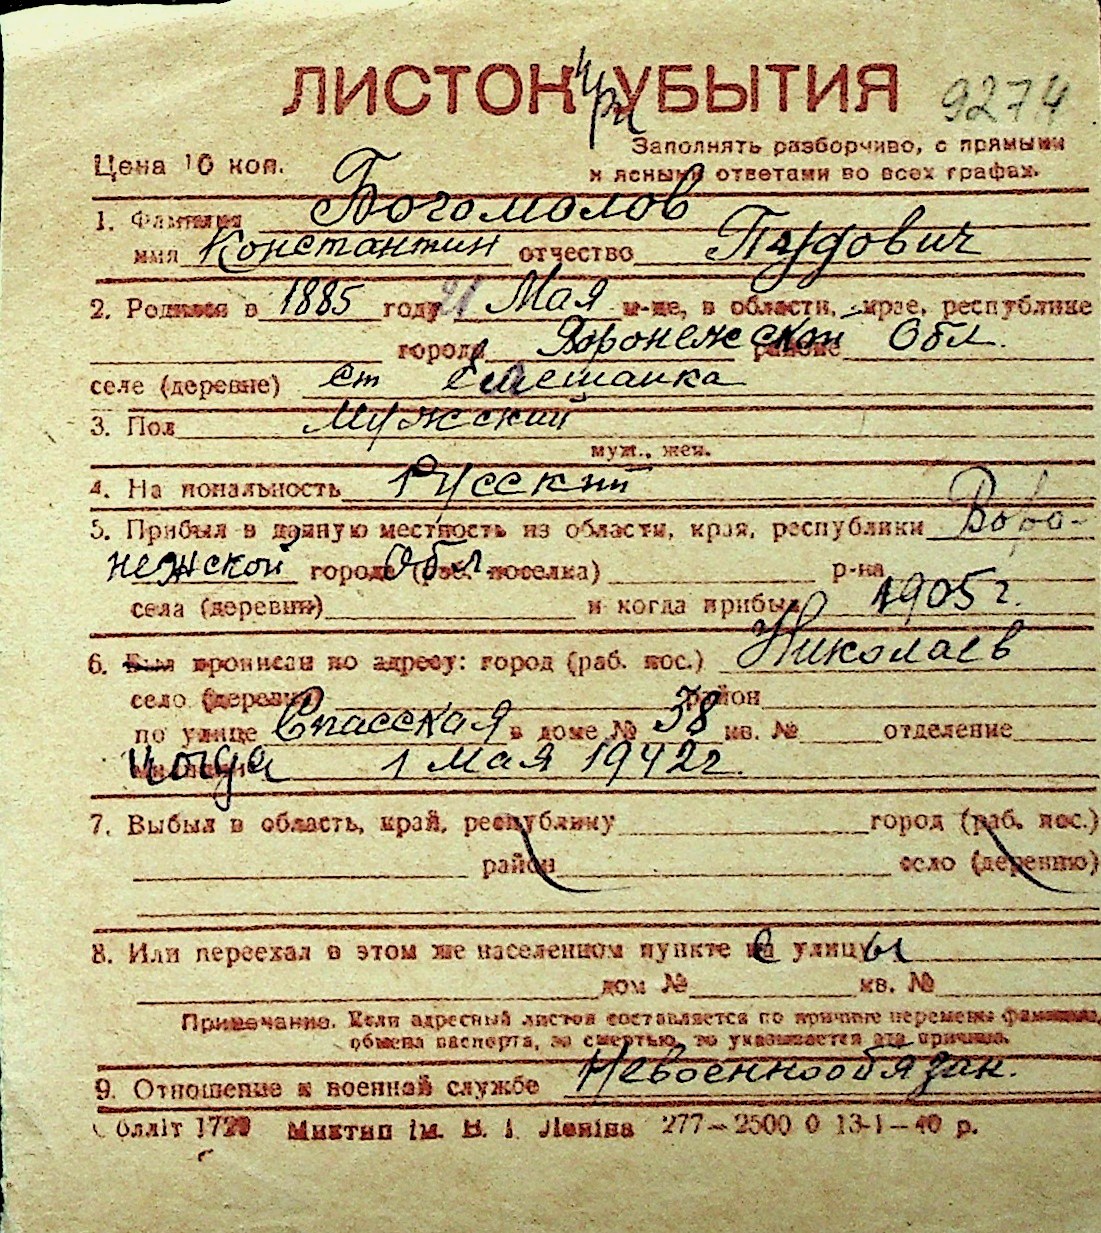 ЛИСТОК при УБЫТИЯ 9274
Заполнять разборчиво, с прямыми
Цена 10 коп. и ясными ответами во всех графах.
1. Фамилия Богомолов
имя Константин отчество Пудович
2. Родился в 1885 году 21 Мая м-це, в области, крае, республике
города Воронежской районе Обл.
селе (деревне) ст
3. Пол Мужский
муж., жен.
4. Национальность Русский
5. Прибыл в данную местность из области, края, республики Воро-
нежской города Обл (раб. поселка) р-на
села (деревни) и когда прибыл 1905 г.
6. Был прописан по адресу: город (раб. пос.) Николаев
село (деревня) район
по улице Спасская в доме № 38 кв. № отделение
милиции когда 1 Мая 1942 г.
7. Выбыл в область, край, республику город (раб. пос.)
район село (деревню)
8. Или переехал в этом же населенном пункте с улицы
дом № кв. №
Примечание. Если адресный листок составляется по причине перемены фамилии,
обмена паспорта, за смертью, то указывается эта причина.
9. Отношение к военной службе Невоеннообязан.
Облліт 1720 Миктип ім. В. І. Леніна 277—2500 0 13-I—40 р.